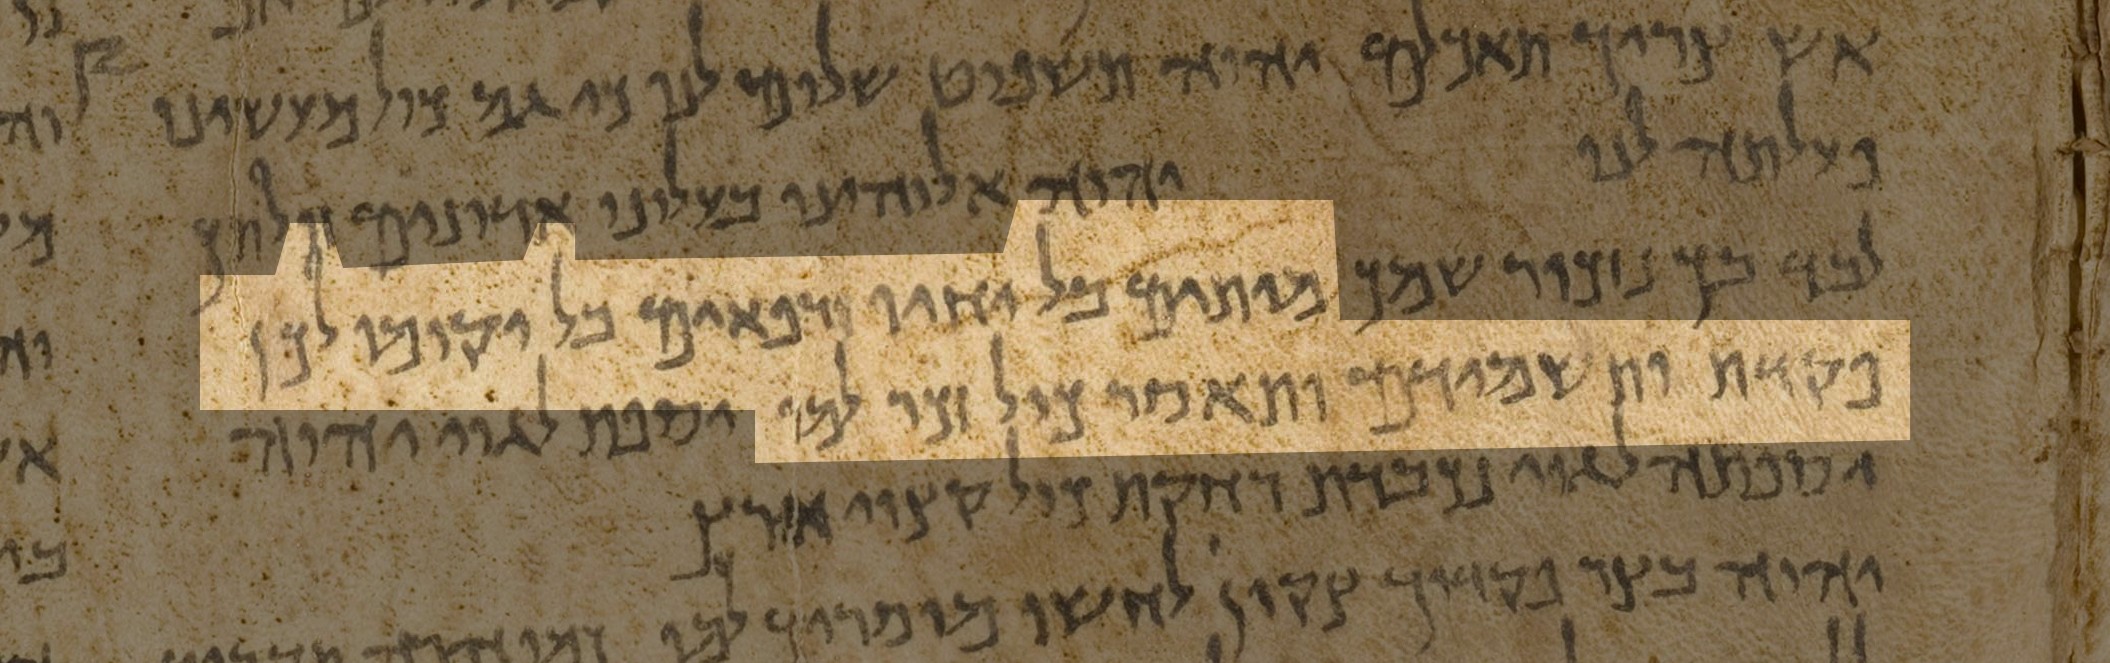 אש צריך תאכלם יהוה תשפוט שלום לנו כי גם כול מעשינו
פעלתה לנו יהוה אלוהינו בעלונו אדונים זולתך
לבד בך נזכור שמך מיתים בל יחיו ורפאים בל יקומו לכן
פקדת ותשמידם ותאסר כול זכר למו יספת לגוי יהוה
יספתה לגוי נכבדת רחקת כול קצוי ארץ
יהוה בצר פקדוך צקון לחשו מוסריך למו